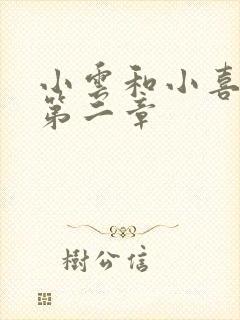 小雲和小喜
第二章
樹公信